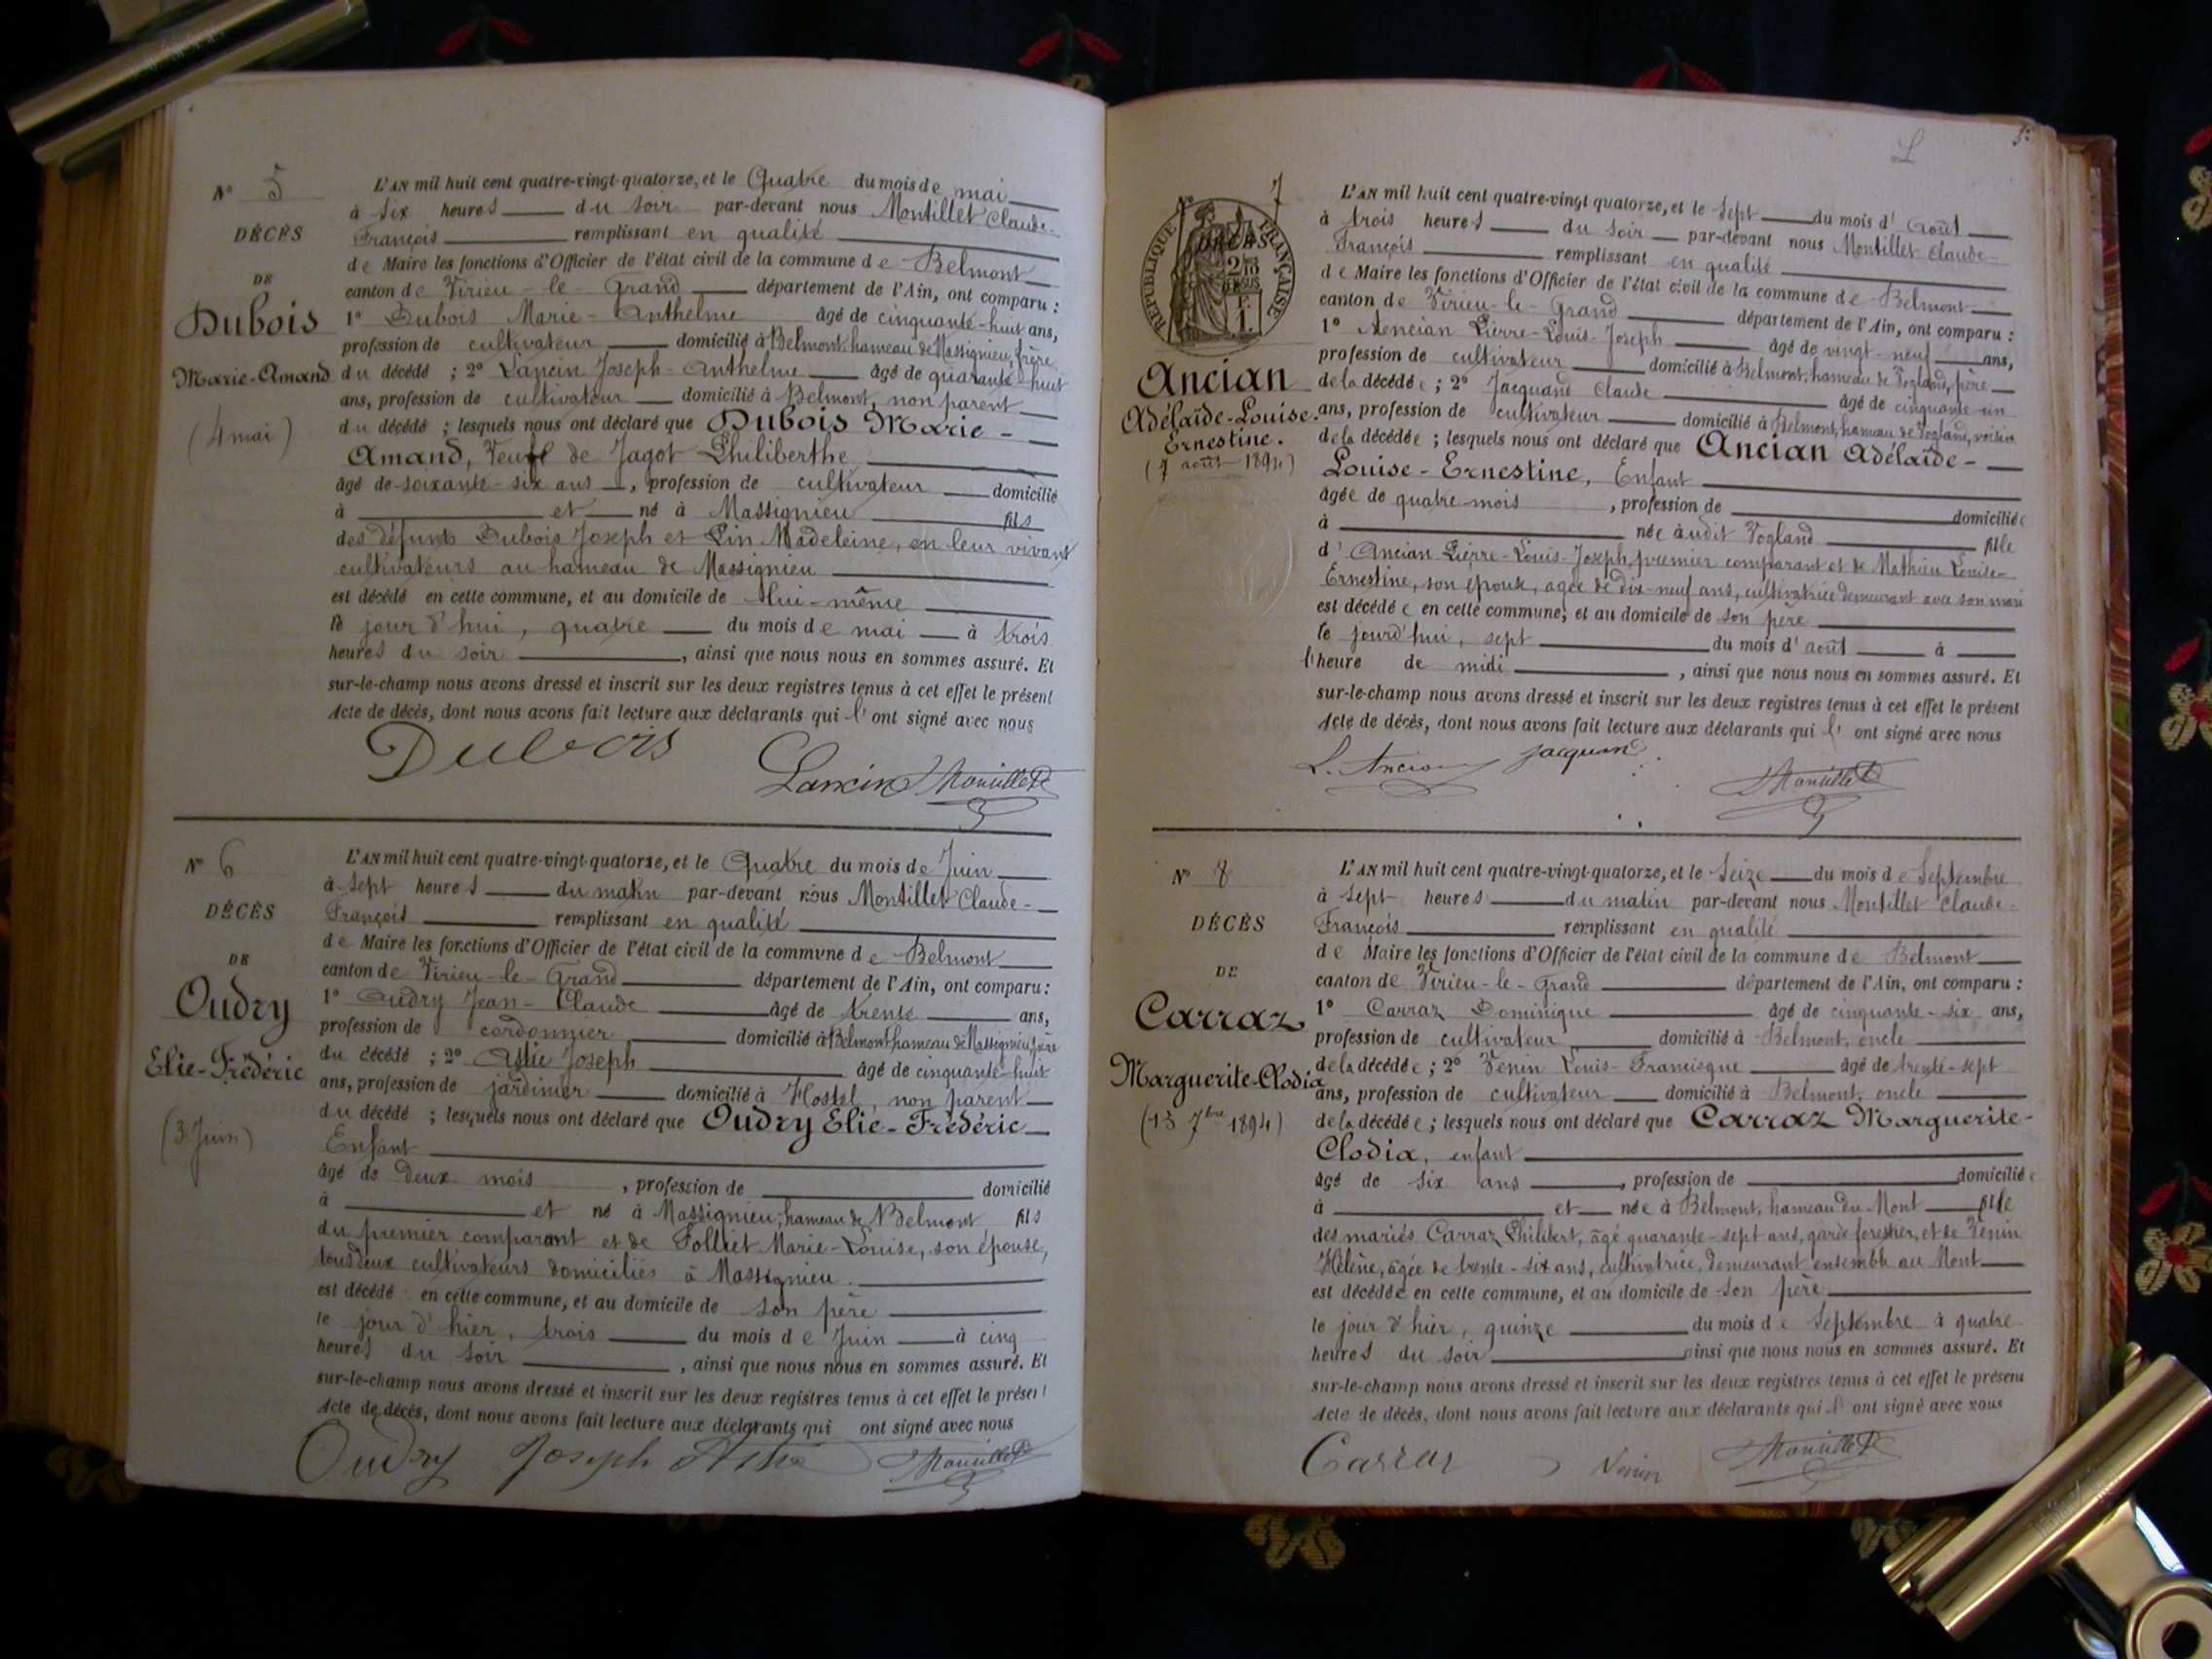 N° 5
DÉCÈS
DE
Dubois
Marie-Amand
(4 mai)
L'AN mil huit cent quatre-vingt-quatorze, et le Quatre du mois de mai
à six heures du soir par-devant nous Montillet Claude-
François remplissant en qualité
de Maire les fonctions d'Officier de l'état civil de la commune de Belmont
canton de Virieu-le-Grand département de l'Ain, ont comparu :
1° Dubois Marie-Anthelme âgé de cinquante-huit ans,
profession de cultivateur domicilié à Belmont, hameau de Massignieu, frère
du décédé ; 2° Lancin Joseph-Anthelme âgé de quarante-huit
ans, profession de cultivateur domicilié à Belmont, non parent
du décédé ; lesquels nous ont déclaré que Dubois Marie-
Amand, Veuf de Jagot Philiberthe
âgé de soixante-six ans, profession de cultivateur domicilié
à et né à Massignieu fils
des défunts Dubois Joseph et Pin Madeleine, en leur vivant
cultivateurs au hameau de Massignieu
est décédé en cette commune, et au domicile de lui-même
le jour d'hui, quatre du mois de mai à trois
heures du soir, ainsi que nous nous en sommes assuré. Et
sur-le-champ nous avons dressé et inscrit sur les deux registres tenus à cet effet le présent
Acte de décès, dont nous avons fait lecture aux déclarants qui l'ont signé avec nous
Dubois Lancin Montillet
N° 6
DÉCÈS
DE
Oudry
Elie-Frédéric
(3 Juin)
L'AN mil huit cent quatre-vingt-quatorze, et le Quatre du mois de Juin
à sept heures du matin par-devant nous Montillet Claude-
François remplissant en qualité
de Maire les fonctions d'Officier de l'état civil de la commune de Belmont
canton de Virieu-le-Grand département de l'Ain, ont comparu :
1° Oudry Jean-Claude âgé de trente ans,
profession de cordonnier domicilié à Belmont hameau de Massignieu, père
du décédé ; 2° Astie Joseph âgé de cinquante-huit
ans, profession de jardinier domicilié à Hostel, non parent
du décédé ; lesquels nous ont déclaré que Oudry Elie-Frédéric
Enfant
âgé de deux mois, profession de domicilié
à et né à Massignieu, hameau de Belmont fils
du premier comparant et de Folliet Marie-Louise, son épouse,
tous deux cultivateurs domiciliés à Massignieu.
est décédé en cette commune, et au domicile de son père
le jour d'hier, trois du mois de Juin à cinq
heures du soir, ainsi que nous nous en sommes assuré. Et
sur-le-champ nous avons dressé et inscrit sur les deux registres tenus à cet effet le présent
Acte de décès, dont nous avons fait lecture aux déclarants qui ont signé avec nous
Oudry Joseph Astie Montillet
N° 7
RÉPUBLIQUE FRANÇAISE
DÉCÈS
Ancian
Adélaïde-Louise-
Ernestine.
(7 août 1894)
L'AN mil huit cent quatre-vingt quatorze, et le sept du mois d'août
à trois heures du soir par-devant nous Montillet Claude-
François remplissant en qualité
de Maire les fonctions d'Officier de l'état civil de la commune de Belmont
canton de Virieu-le-Grand département de l'Ain, ont comparu :
1° Ancian Pierre-Louis-Joseph âgé de vingt-neuf ans,
profession de cultivateur domicilié à Belmont, hameau de Vogland, père
de la décédée ; 2° Jacquand Claude âgé de cinquante-un
ans, profession de cultivateur domicilié à Belmont, hameau de Vogland, voisin
de la décédée ; lesquels nous ont déclaré que Ancian Adélaïde-
Louise-Ernestine, Enfant
âgée de quatre mois, profession de domiciliée
à née audit Vogland fille
d'Ancian Pierre-Louis-Joseph, premier comparant et de Mathieu Louise-
Ernestine, son épouse, agée de dix-neuf ans, cultivatrice demeurant avec son mari
est décédée en cette commune, et au domicile de son père
le jourd'hui, sept du mois d'août à
l'heure de midi, ainsi que nous nous en sommes assuré. Et
sur-le-champ nous avons dressé et inscrit sur les deux registres tenus à cet effet le présent
Acte de décès, dont nous avons fait lecture aux déclarants qui l'ont signé avec nous
L. Ancian Jacquand Montillet
N° 8
DÉCÈS
DE
Carraz
Marguerite-Clodia
(13 7bre 1894)
L'AN mil huit cent quatre-vingt-quatorze, et le Seize du mois de Septembre
à sept heures du matin par-devant nous Montillet Claude-
François remplissant en qualité
de Maire les fonctions d'Officier de l'état civil de la commune de Belmont
canton de Virieu-le-Grand département de l'Ain, ont comparu :
1° Carraz Dominique âgé de cinquante-six ans,
profession de cultivateur domicilié à Belmont, oncle
de la décédée ; 2° Venin Louis-Francisque âgé de trente-sept
ans, profession de cultivateur domicilié à Belmont, oncle
de la décédée ; lesquels nous ont déclaré que Carraz Marguerite-
Clodia, enfant
âgé de six ans, profession de domiciliée
à et née à Belmont, hameau du Mont fille
des mariés Carraz Philibert, âgé quarante-sept ans, garde forestier, et de Venin
Hélène, agée de trente-six ans, cultivatrice, demeurant ensemble au Mont
est décédée en cette commune, et au domicile de son père
le jour d'hier, quinze du mois de Septembre à quatre
heures du soir ainsi que nous nous en sommes assuré. Et
sur-le-champ nous avons dressé et inscrit sur les deux registres tenus à cet effet le présent
Acte de décès, dont nous avons fait lecture aux déclarants qui l'ont signé avec nous
Carraz Venin Montillet